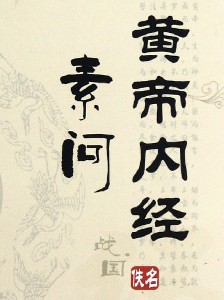 黄帝内经
素问
战国
佚名